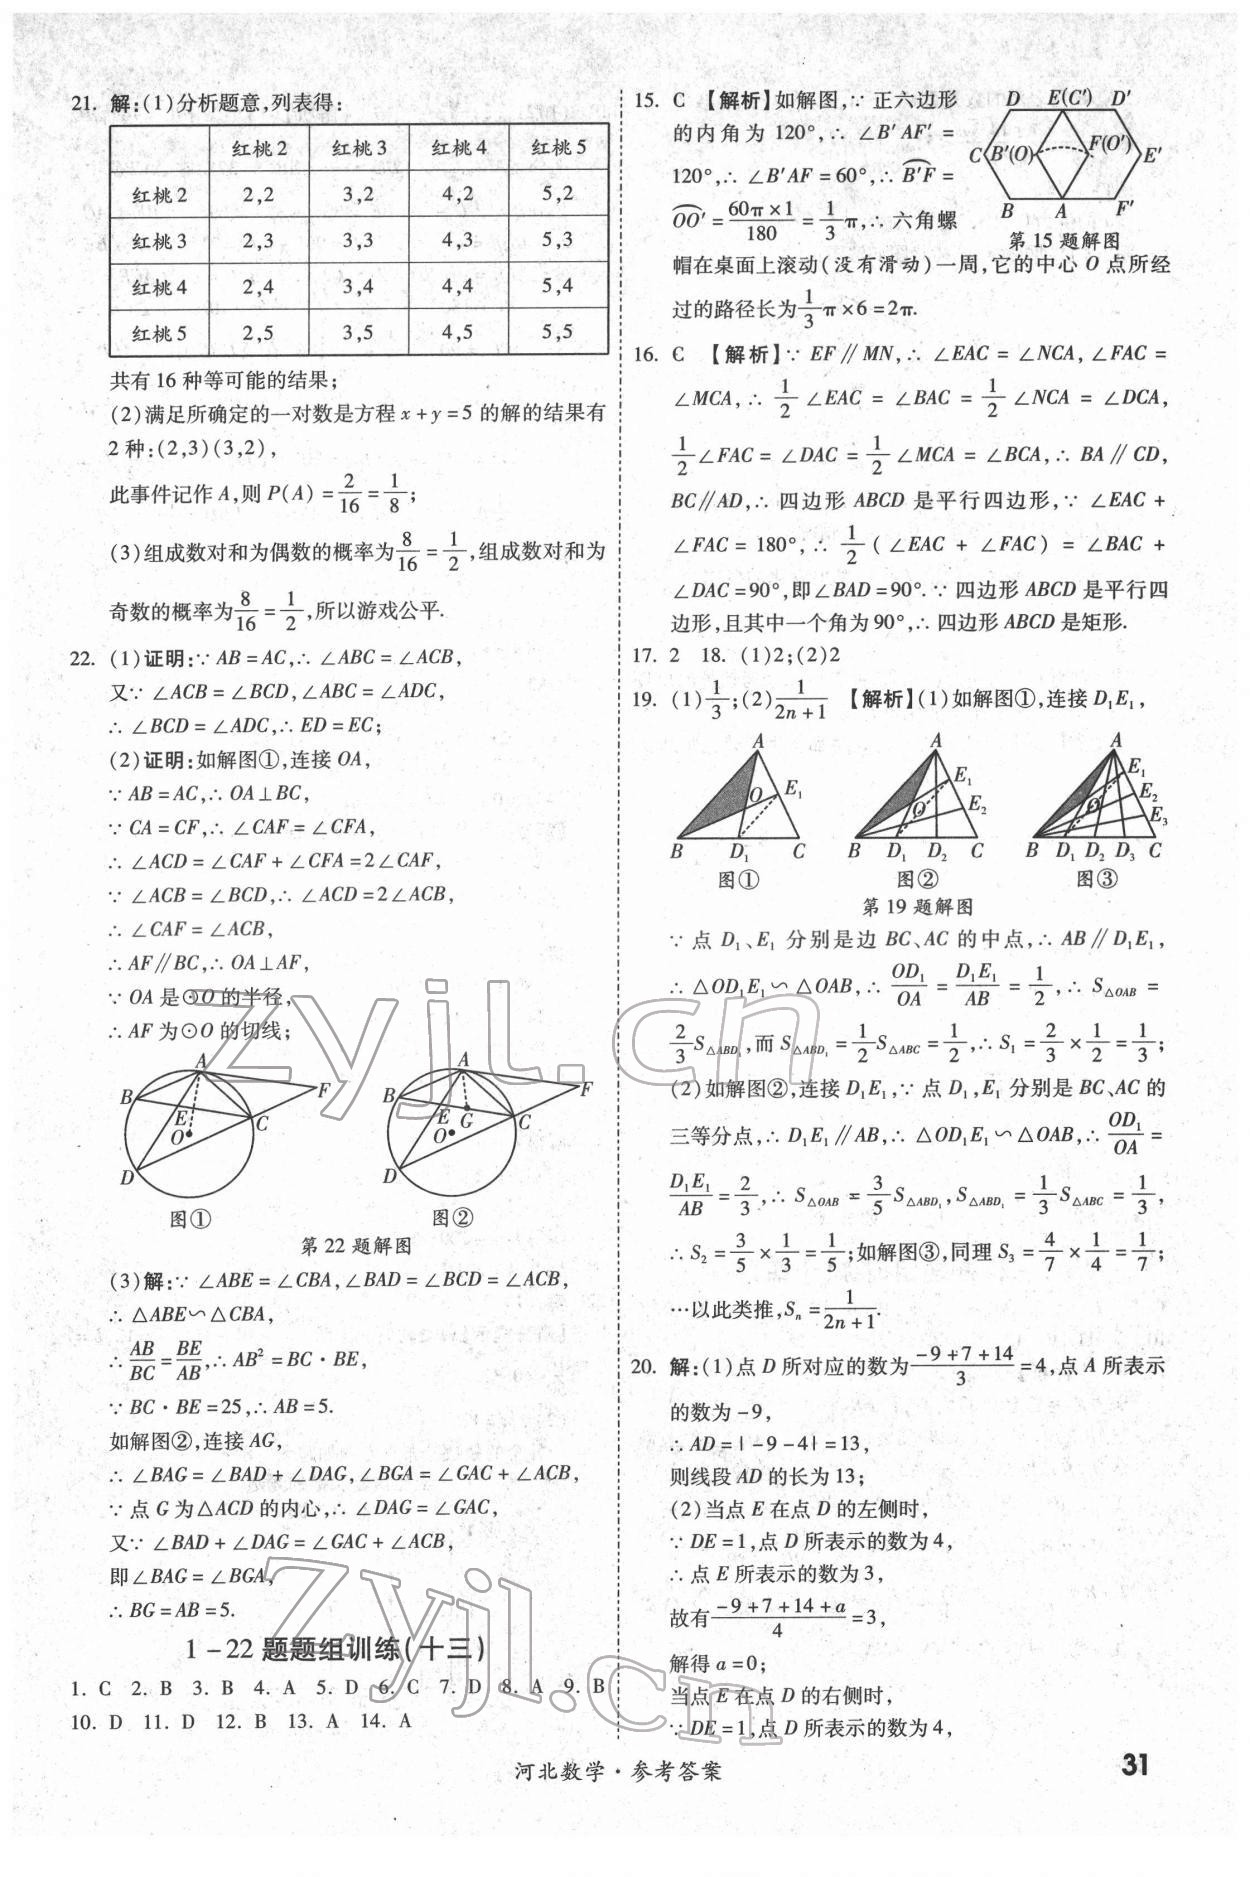 21. 解:(1)分析题意,列表得:
红桃2 红桃3 红桃4 红桃5
红桃2 2,2 3,2 4,2 5,2
红桃3 2,3 3,3 4,3 5,3
红桃4 2,4 3,4 4,4 5,4
红桃5 2,5 3,5 4,5 5,5
共有16种等可能的结果;
(2)满足所确定的一对数是方程x+y=5的解的结果有
2种:(2,3)(3,2),
此事件记作A,则P(A)=2/16=1/8;
(3)组成数对和为偶数的概率为8/16=1/2,组成数对和为
奇数的概率为8/16=1/2,所以游戏公平.
22. (1)证明:∵AB=AC,∴∠ABC=∠ACB,
又∵∠ACB=∠BCD,∠ABC=∠ADC,
∴∠BCD=∠ADC,∴ED=EC;
(2)证明:如解图①,连接OA,
∵AB=AC,∴OA⊥BC,
∵CA=CF,∴∠CAF=∠CFA,
∴∠ACD=∠CAF+∠CFA=2∠CAF,
∵∠ACB=∠BCD,∴∠ACD=2∠ACB,
∴∠CAF=∠ACB,
∴AF∥BC,∴OA⊥AF,
∵OA是⊙O的半径,
∴AF为⊙O的切线;
A B E O C D F
A B E G O C D F
图① 图②
第22题解图
(3)解:∵∠ABE=∠CBA,∠BAD=∠BCD=∠ACB,
∴△ABE∽△CBA,
∴AB/BC=BE/AB,∴AB²=BC·BE,
∵BC·BE=25,∴AB=5.
如解图②,连接AG,
∴∠BAG=∠BAD+∠DAG,∠BGA=∠GAC+∠ACB,
∵点G为△ACD的内心,∴∠DAG=∠GAC,
又∵∠BAD+∠DAG=∠GAC+∠ACB,
即∠BAG=∠BGA,
∴BG=AB=5.
1-22题题组训练(十三)
1. C 2. B 3. B 4. A 5. D 6. C 7. D 8. A 9. B
10. D 11. D 12. B 13. A 14. A
15. C 【解析】如解图,∵正六边形
的内角为120°,∴∠B′AF′=
120°,∴∠B′AF=60°,∴B′F⌒=
OO′⌒=60π×1/180=1/3π,∴六角螺
D E(C′) D′
C B′(O) F(O′) E′
B A F′
第15题解图
帽在桌面上滚动(没有滑动)一周,它的中心O点所经
过的路径长为1/3π×6=2π.
16. C 【解析】∵EF∥MN,∴∠EAC=∠NCA,∠FAC=
∠MCA,∴1/2∠EAC=∠BAC=1/2∠NCA=∠DCA,
1/2∠FAC=∠DAC=1/2∠MCA=∠BCA,∴BA∥CD,
BC∥AD,∴四边形ABCD是平行四边形,∵∠EAC+
∠FAC=180°,∴1/2(∠EAC+∠FAC)=∠BAC+
∠DAC=90°,即∠BAD=90°.∵四边形ABCD是平行四
边形,且其中一个角为90°,∴四边形ABCD是矩形.
17. 2 18. (1)2;(2)2
19. (1)1/3;(2)1/(2n+1) 【解析】(1)如解图①,连接D₁E₁,
A O E₁ B D₁ C
A E₁ O E₂ B D₁ D₂ C
A E₁ O E₂ E₃ B D₁ D₂ D₃ C
图① 图② 图③
第19题解图
∵点D₁、E₁分别是边BC、AC的中点,∴AB∥D₁E₁,
∴△OD₁E₁∽△OAB,∴OD₁/OA=D₁E₁/AB=1/2,∴S△OAB=
2/3S△ABD₁,而S△ABD₁=1/2S△ABC=1/2,∴S₁=2/3×1/2=1/3;
(2)如解图②,连接D₁E₁,∵点D₁,E₁分别是BC、AC的
三等分点,∴D₁E₁∥AB,∴△OD₁E₁∽△OAB,∴OD₁/OA=
D₁E₁/AB=2/3,∴S△OAB=3/5S△ABD₁,S△ABD₁=1/3S△ABC=1/3,
∴S₂=3/5×1/3=1/5;如解图③,同理S₃=4/7×1/4=1/7;
…以此类推,Sₙ=1/(2n+1).
20. 解:(1)点D所对应的数为(-9+7+14)/3=4,点A所表示
的数为-9,
∴AD=|-9-4|=13,
则线段AD的长为13;
(2)当点E在点D的左侧时,
∵DE=1,点D所表示的数为4,
∴点E所表示的数为3,
故有(-9+7+14+a)/4=3,
解得a=0;
当点E在点D的右侧时,
∵DE=1,点D所表示的数为4,
河北数学·参考答案
31
zyjl.cn
zyjl.cn